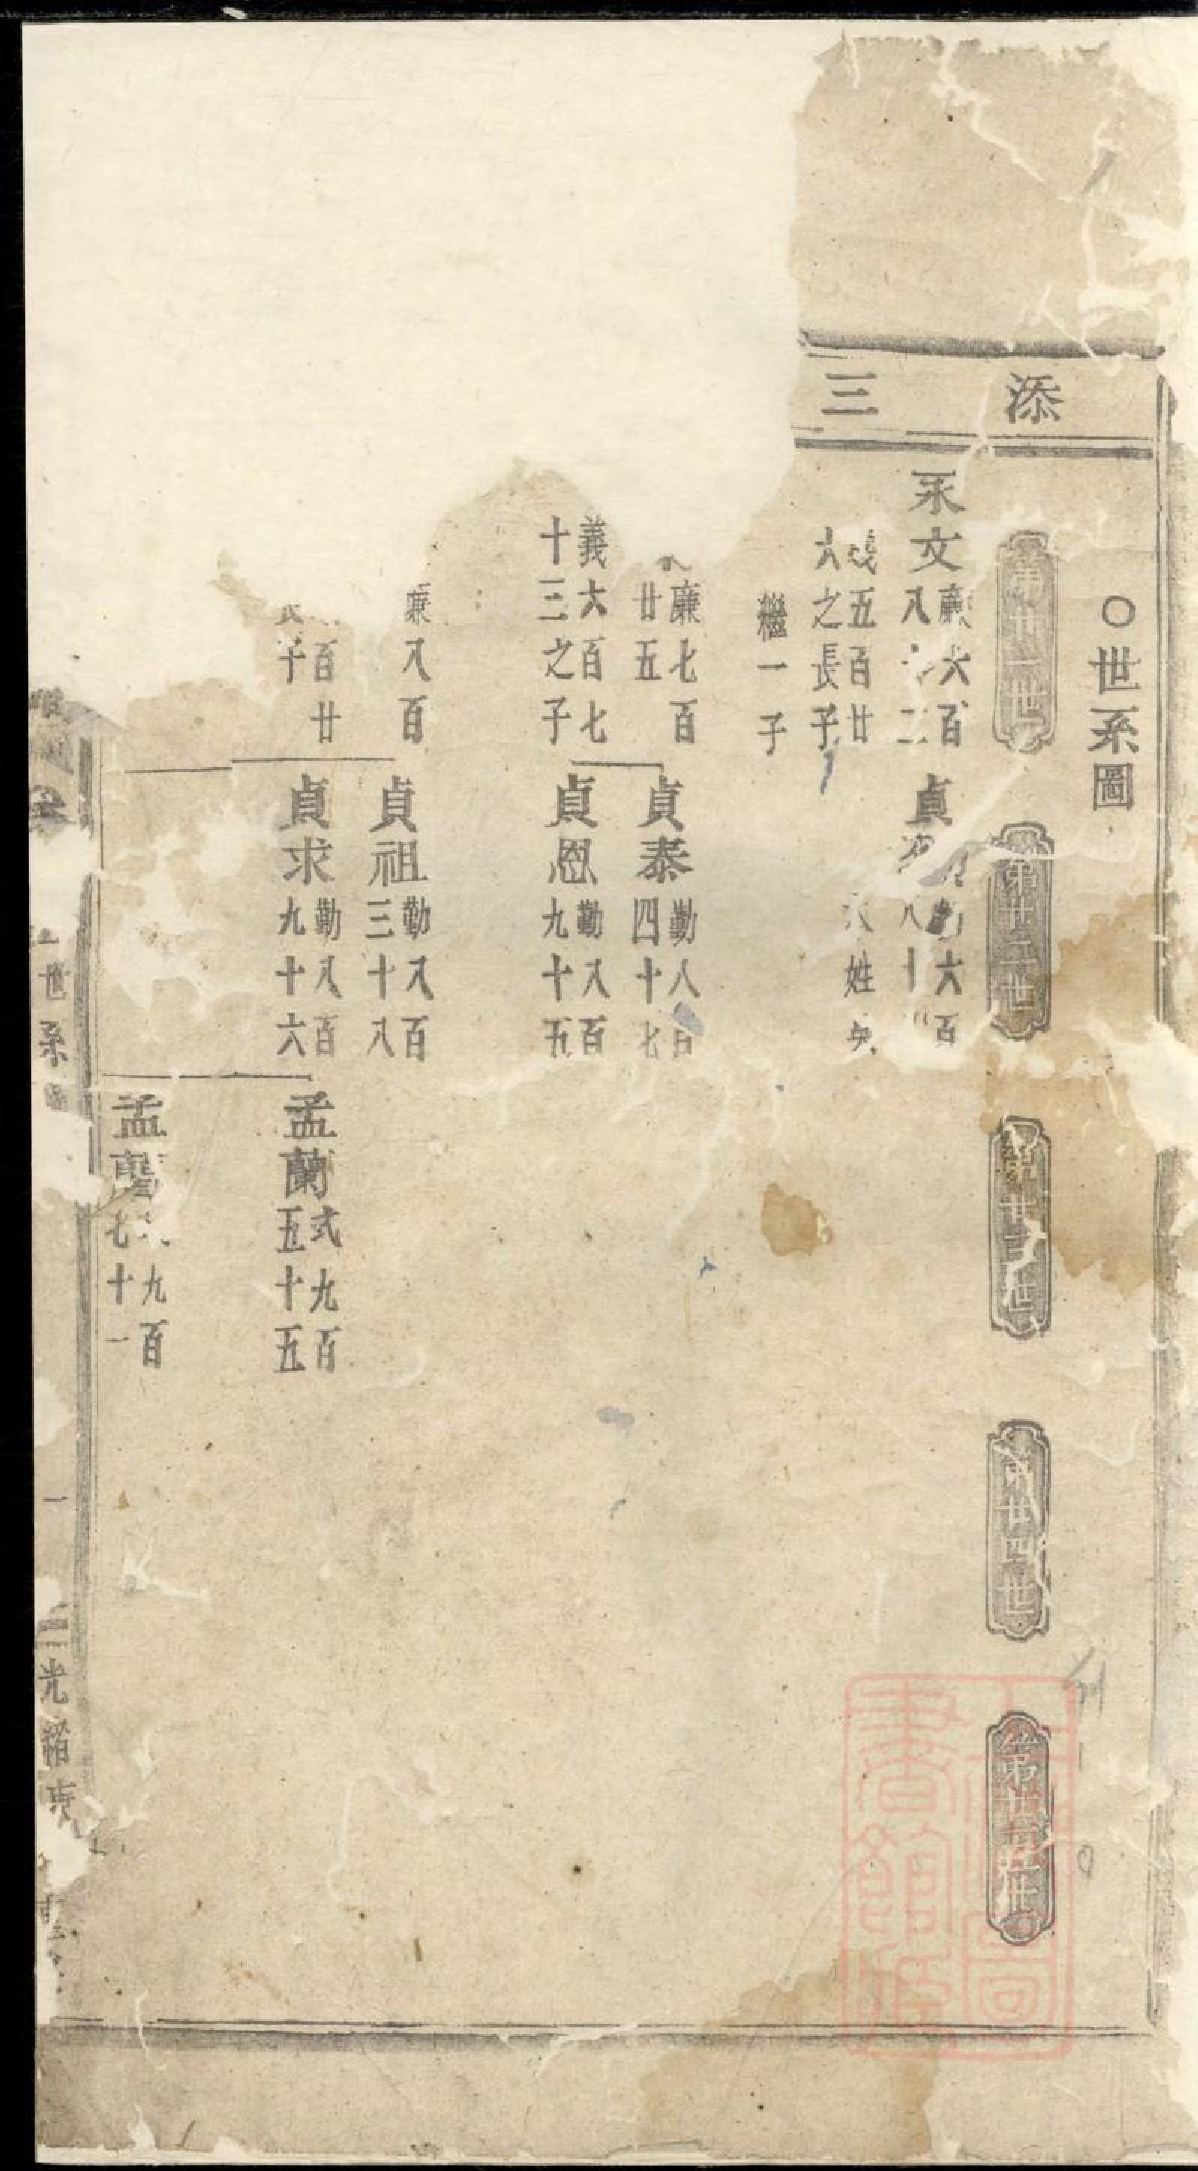 添
三
○世系圖
第廿一世
第廿二世
第廿三世
第廿四世
第廿五世
永文
廉六百
八十二
義五百廿
六之長子
繼一子
貞
勤六百
八十
姓
廉七百
廿五
義六百七
十三之子
貞泰
勤八百
四十七
貞恩
勤八百
九十五
廉八百
百廿
長子
貞祖
勤八百
三十八
貞求
勤八百
九十六
孟蘭
式九百
五十五
孟
九百
七十一
世系圖
一
光緒庚